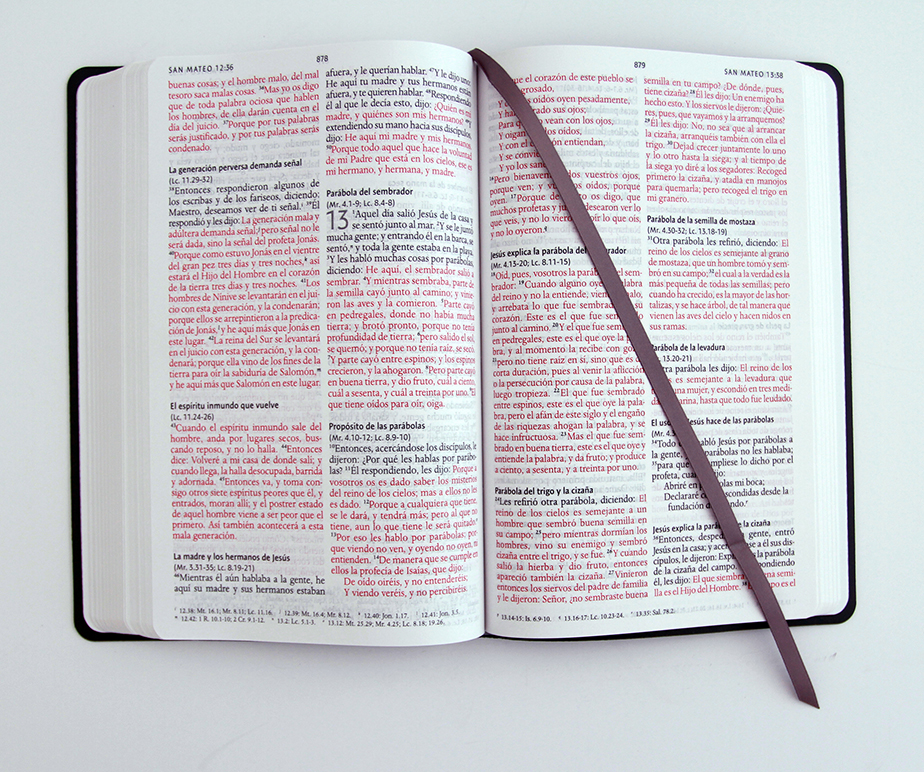 SAN MATEO 12:36
878
buenas cosas; y el hombre malo, del mal
tesoro saca malas cosas. 36Mas yo os digo
que de toda palabra ociosa que hablen
los hombres, de ella darán cuenta en el
día del juicio. 37Porque por tus palabras
serás justificado, y por tus palabras serás
condenado.
La generación perversa demanda señal
(Lc. 11.29-32)
38Entonces respondieron algunos de
los escribas y de los fariseos, diciendo:
Maestro, deseamos ver de ti señal. 39Él
respondió y les dijo: La generación mala y
adúltera demanda señal; pero señal no le
será dada, sino la señal del profeta Jonás.
40Porque como estuvo Jonás en el vientre
del gran pez tres días y tres noches, así
estará el Hijo del Hombre en el corazón
de la tierra tres días y tres noches. 41Los
hombres de Nínive se levantarán en el jui-
cio con esta generación, y la condenarán;
porque ellos se arrepintieron a la predica-
ción de Jonás, y he aquí más que Jonás en
este lugar. 42La reina del Sur se levantará
en el juicio con esta generación, y la con-
denará; porque ella vino de los fines de la
tierra para oír la sabiduría de Salomón,
y he aquí más que Salomón en este lugar.
El espíritu inmundo que vuelve
(Lc. 11.24-26)
43Cuando el espíritu inmundo sale del
hombre, anda por lugares secos, bus-
cando reposo, y no lo halla. 44Entonces
dice: Volveré a mi casa de donde salí; y
cuando llega, la halla desocupada, barrida
y adornada. 45Entonces va, y toma con-
sigo otros siete espíritus peores que él, y
entrados, moran allí; y el postrer estado
de aquel hombre viene a ser peor que el
primero. Así también acontecerá a esta
mala generación.
La madre y los hermanos de Jesús
(Mr. 3.31-35; Lc. 8.19-21)
46Mientras él aún hablaba a la gente, he
aquí su madre y sus hermanos estaban
afuera, y le querían hablar. 47Y le dijo uno:
He aquí tu madre y tus hermanos están
afuera, y te quieren hablar. 48Respondiendo
él al que le decía esto, dijo: ¿Quién es mi
madre, y quiénes son mis hermanos? 49Y
extendiendo su mano hacia sus discípulos,
dijo: He aquí mi madre y mis hermanos.
50Porque todo aquel que hace la voluntad
de mi Padre que está en los cielos, ese es
mi hermano, y hermana, y madre.
Parábola del sembrador
(Mr. 4.1-9; Lc. 8.4-8)
13 1Aquel día salió Jesús de la casa y
se sentó junto al mar. 2Y se le juntó
mucha gente; y entrando él en la barca, se
sentó, y toda la gente estaba en la playa.
3Y les habló muchas cosas por parábolas,
diciendo: He aquí, el sembrador salió a
sembrar. 4Y mientras sembraba, parte de
la semilla cayó junto al camino; y vinie-
ron las aves y la comieron. 5Parte cayó
en pedregales, donde no había mucha
tierra; y brotó pronto, porque no tenía
profundidad de tierra; 6pero salido el sol,
se quemó; y porque no tenía raíz, se secó.
7Y parte cayó entre espinos; y los espinos
crecieron, y la ahogaron. 8Pero parte cayó
en buena tierra, y dio fruto, cuál a ciento,
cuál a sesenta, y cuál a treinta por uno. 9El
que tiene oídos para oír, oiga.
Propósito de las parábolas
(Mr. 4.10-12; Lc. 8.9-10)
10Entonces, acercándose los discípulos, le
dijeron: ¿Por qué les hablas por parábo-
las? 11Él respondiendo, les dijo: Porque a
vosotros os es dado saber los misterios
del reino de los cielos; mas a ellos no les
es dado. 12Porque a cualquiera que tiene,
se le dará, y tendrá más; pero al que no
tiene, aun lo que tiene le será quitado.
13Por eso les hablo por parábolas: por-
que viendo no ven, y oyendo no oyen, ni
entienden. 14De manera que se cumple en
ellos la profecía de Isaías, que dijo:
De oído oiréis, y no entenderéis;
Y viendo veréis, y no percibiréis.
12.38: Mt. 16.1; Mr. 8.11; Lc. 11.16. 12.39: Mt. 16.4; Mr. 8.12. 12.40: Jon. 1.17. 12.41: Jon. 3.5.
12.42: 1 R. 10.1-10; 2 Cr. 9.1-12. 13.2: Lc. 5.1-3. 13.12: Mt. 25.29; Mr. 4.25; Lc. 8.18; 19.26.
879
SAN MATEO 13:38
que el corazón de este pueblo se
oídos oyen pesadamente,
sus ojos;
Para q vean con los ojos,
Y oigan los oídos,
Y con el entiendan,
Y se
Y yo los
16Pero bienaven vuestros ojos,
porque ven; y oídos, porque
oyen. 17Porque de os digo, que
muchos profetas y desearon ver lo
que veis, y no lo vieron; oír lo que oís,
y no lo oyeron.
Jesús explica la parábola del sembrador
(Mr. 4.13-20; Lc. 8.11-15)
18Oíd, pues, vosotros la parábola del sem-
brador: 19Cuando alguno oye la palabra
del reino y no la entiende, viene el malo,
y arrebata lo que fue sembrado en su
corazón. Este es el que fue sembrado
junto al camino. 20Y el que fue sembrado
en pedregales, este es el que oye la pala-
bra, y al momento la recibe con gozo;
21pero no tiene raíz en sí, sino que es de
corta duración, pues al venir la aflicción
o la persecución por causa de la palabra,
luego tropieza. 22El que fue sembrado
entre espinos, este es el que oye la pala-
bra, pero el afán de este siglo y el engaño
de las riquezas ahogan la palabra, y se
hace infructuosa. 23Mas el que fue sem-
brado en buena tierra, este es el que oye y
entiende la palabra, y da fruto; y produce
a ciento, a sesenta, y a treinta por uno.
Parábola del trigo y la cizaña
24Les refirió otra parábola, diciendo: El
reino de los cielos es semejante a un
hombre que sembró buena semilla en
su campo; 25pero mientras dormían los
hombres, vino su enemigo y sembró
cizaña entre el trigo, y se fue. 26Y cuando
salió la hierba y dio fruto, entonces
apareció también la cizaña. 27Vinieron
entonces los siervos del padre de familia
y le dijeron: Señor, ¿no sembraste buena
semilla en tu campo? ¿De dónde, pues,
tiene cizaña? 28Él les dijo: Un enemigo ha
hecho esto. Y los siervos le dijeron: ¿Quie-
res, pues, que vayamos y la arranquemos?
29Él les dijo: No, no sea que al arrancar
la cizaña, arranquéis también con ella el
trigo. 30Dejad crecer juntamente lo uno
y lo otro hasta la siega; y al tiempo de
la siega yo diré a los segadores: Recoged
primero la cizaña, y atadla en manojos
para quemarla; pero recoged el trigo en
mi granero.
Parábola de la semilla de mostaza
(Mr. 4.30-32; Lc. 13.18-19)
31Otra parábola les refirió, diciendo: El
reino de los cielos es semejante al grano
de mostaza, que un hombre tomó y sem-
bró en su campo; 32el cual a la verdad es la
más pequeña de todas las semillas; pero
cuando ha crecido, es la mayor de las hor-
talizas, y se hace árbol, de tal manera que
vienen las aves del cielo y hacen nidos en
sus ramas.
Parábola de la levadura
13.20-21)
parábola les dijo: El reino de los
es semejante a la levadura que
una mujer, y escondió en tres medi-
harina, hasta que todo fue leudado.
El uso Jesús hace de las parábolas
(Mr. 4.
34Todo habló Jesús por parábolas a
la gente, parábolas no les hablaba;
35para que cumpliese lo dicho por el
profeta, cuando
Abriré en mi boca;
Declararé escondidas desde la
fundación do.
Jesús explica la parábola de la cizaña
36Entonces, desped gente, entró
Jesús en la casa; y acer a él sus dis-
cípulos, le dijeron: Exp la parábola
de la cizaña del campo. Respondiendo
él, les dijo: El que siembra na semi-
lla es el Hijo del Hombre. po es el
13.14-15: Is. 6.9-10. 13.16-17: Lc. 10.23-24. 13.35: Sal. 78.2.